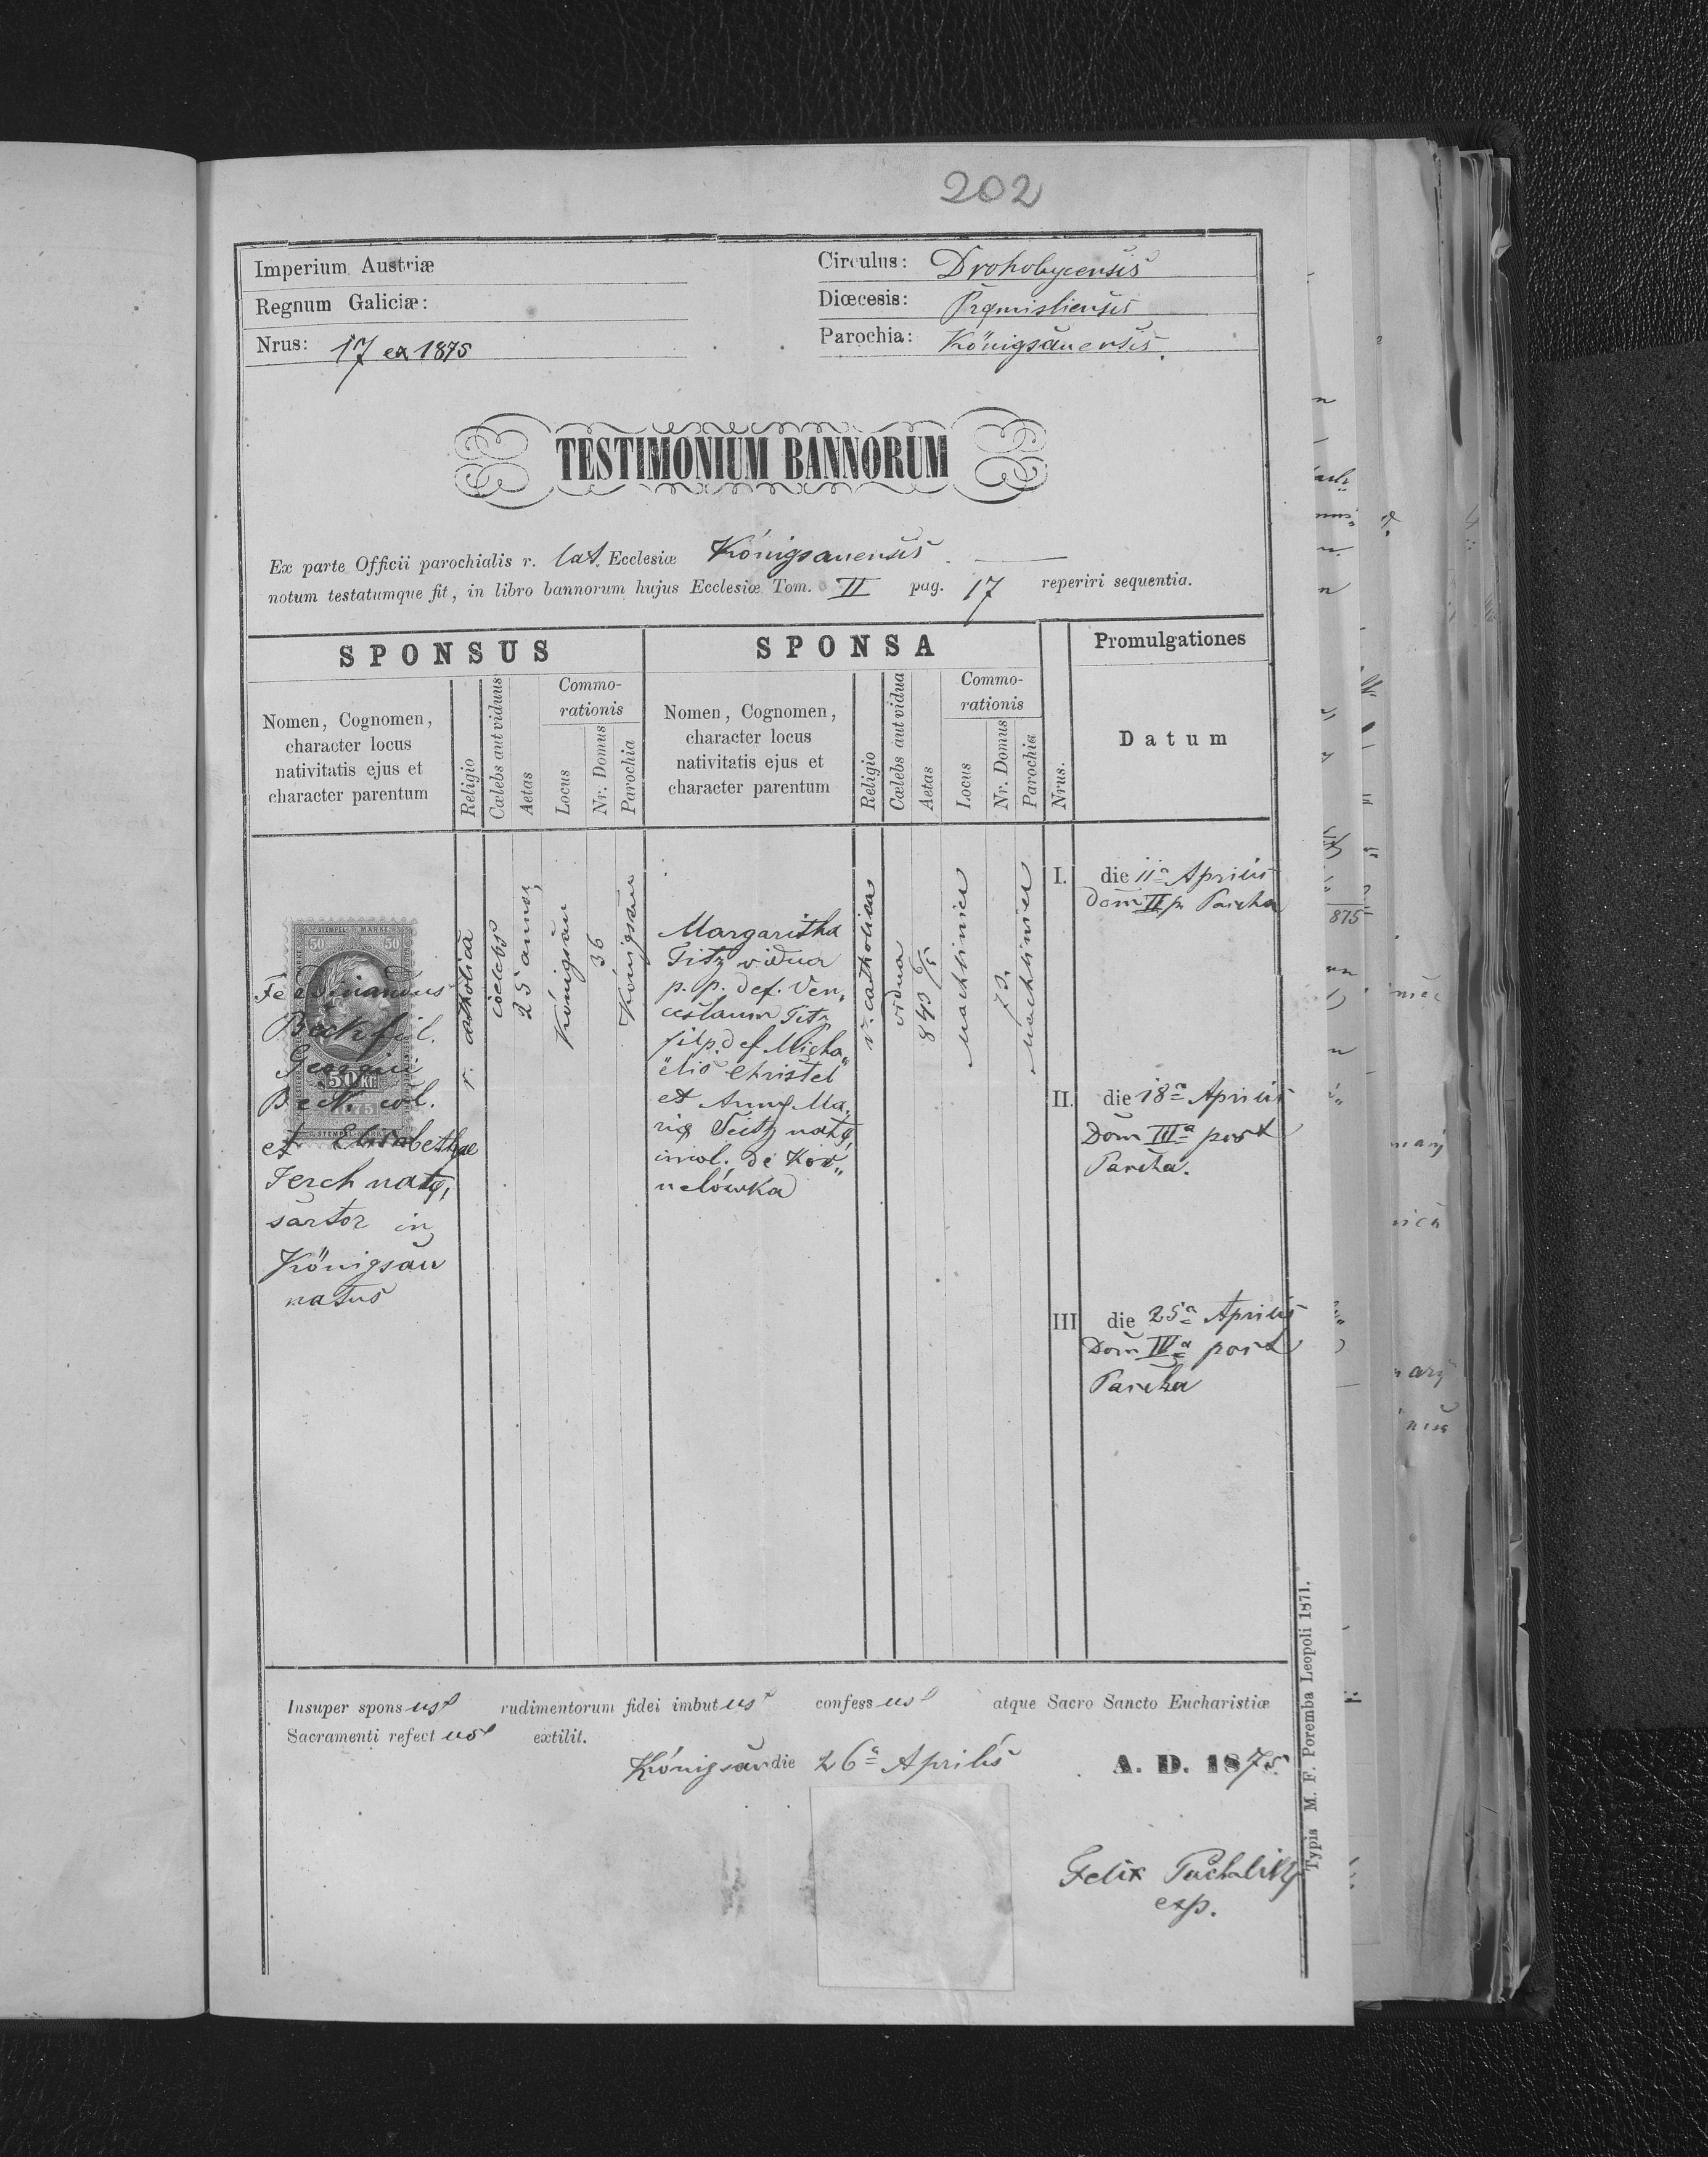 202
Imperium Austriæ
Regnum Galiciæ:
Nrus: 17 ex 1875
Circulus: Drohobycensis
Diœcesis: Przmisliensis
Parochia: Königsauensis.
TESTIMONIUM BANNORUM
Ex parte Officii parochialis r. lat. Ecclesiæ Königsauensis
notum testatumque fit, in libro bannorum hujus Ecclesiæ Tom. II pag. 17 reperiri sequentia.
SPONSUS
Nomen, Cognomen,
character locus
nativitatis ejus et
character parentum
Religio
Cælebs aut viduus
Aetas
Commo-
rationis
Locus
Nr. Domus
Parochia
SPONSA
Nomen, Cognomen,
character locus
nativitatis ejus et
character parentum
Religio
Cælebs aut vidua
Aetas
Commo-
rationis
Locus
Nr. Domus
Parochia
Nrus.
Promulgationes
Datum
STEMPEL MARKE
50 50
50 Kr
1875
Ferdinandus
Beck fil.
Georgii
Beck col.
et Elisabethae
Ferch natq,
sartor in
Königsau
natus
r. catholica
coelebs
25 annor,
Königsau
36
Königsau
Margaritha
Titz vidua
p. p. def. Ven,
ceslaum Titz
fil p. def Micha,,
ëlis Christel
et Annq Ma,
riq Seitz natq,
incol. de Kor,,
nelówka
r. catholica
vidua
843 6/5
Machliniec
73.
Machliniec
I. die 11a Aprilis
Dom II p. Pascha
II. die 18a Aprilis
Dom III a post
Pascha.
III die 25a Aprilis
Dom IV a post
Pascha
Insuper sponsus rudimentorum fidei imbutus confessus atque Sacro Sancto Eucharistiæ
Sacramenti refectus extilit.
Königsau die 26a Aprilis A. D. 1875
Felix Puchalik
exp.
Typis M. F. Poremba Leopoli 1871.
875